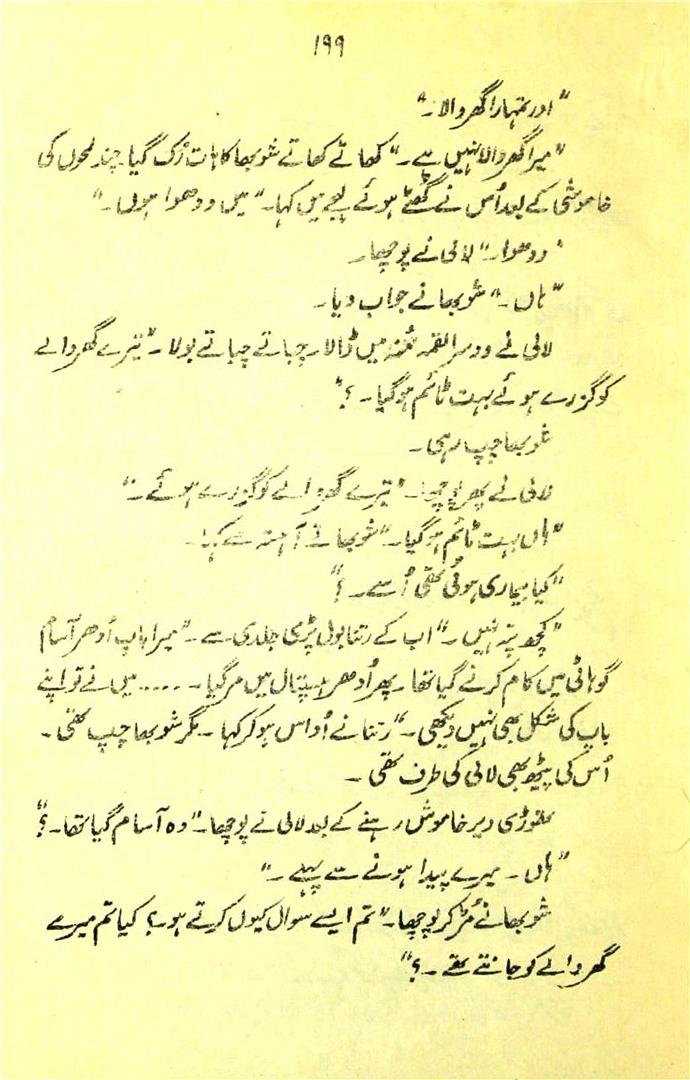 ۱۹۹
"اور تمہارا گھر والا۔"
"میرا گھر والا نہیں ہے۔" کھاتے کھاتے شوبھا کا ہات رُک گیا۔ چند لمحوں کی
خاموشی کے بعد اُس نے گھٹے ہوئے لہجے میں کہا۔ "میں ودھوا ہوں۔"
"ودھوا۔" لالی نے پوچھا۔
"ہاں۔" شوبھا نے جواب دیا۔
لالی نے دوسرا لقمہ مُنہ میں ڈالا۔ چباتے چباتے بولا۔ "تیرے گھر والے
کو گزرے ہوئے بہت ٹائم ہو گیا۔؟"
شوبھا چپ رہی۔
لالی نے پھر پوچھا۔ "تیرے گھر والے کو گزرے ہوئے۔"
"ہاں بہت ٹائم ہو گیا۔" شوبھا نے آہستہ سے کہا۔
"کیا بیماری ہوئی تھی اُسے۔؟"
"کچھ پتہ نہیں۔" اب کے رتنا بول پڑی جلدی سے۔ "میرا باپ اُدھر آسام
گوہاٹی میں کام کرنے گیا تھا۔ پھر اُدھر ہسپتال میں مر گیا۔ ..... میں نے تو اپنے
باپ کی شکل بھی نہیں دیکھی۔" رتنا نے اُداس ہو کر کہا۔ مگر شوبھا چپ تھی۔
اُس کی پیٹھ بھی لالی کی طرف تھی۔
تھوڑی دیر خاموش رہنے کے بعد لالی نے پوچھا۔ "وہ آسام گیا تھا۔؟"
"ہاں۔ میرے پیدا ہونے سے پہلے۔"
شوبھا نے مُڑ کر پوچھا۔ "تم ایسے سوال کیوں کرتے ہو۔؟ کیا تم میرے
گھر والے کو جانتے تھے۔؟"